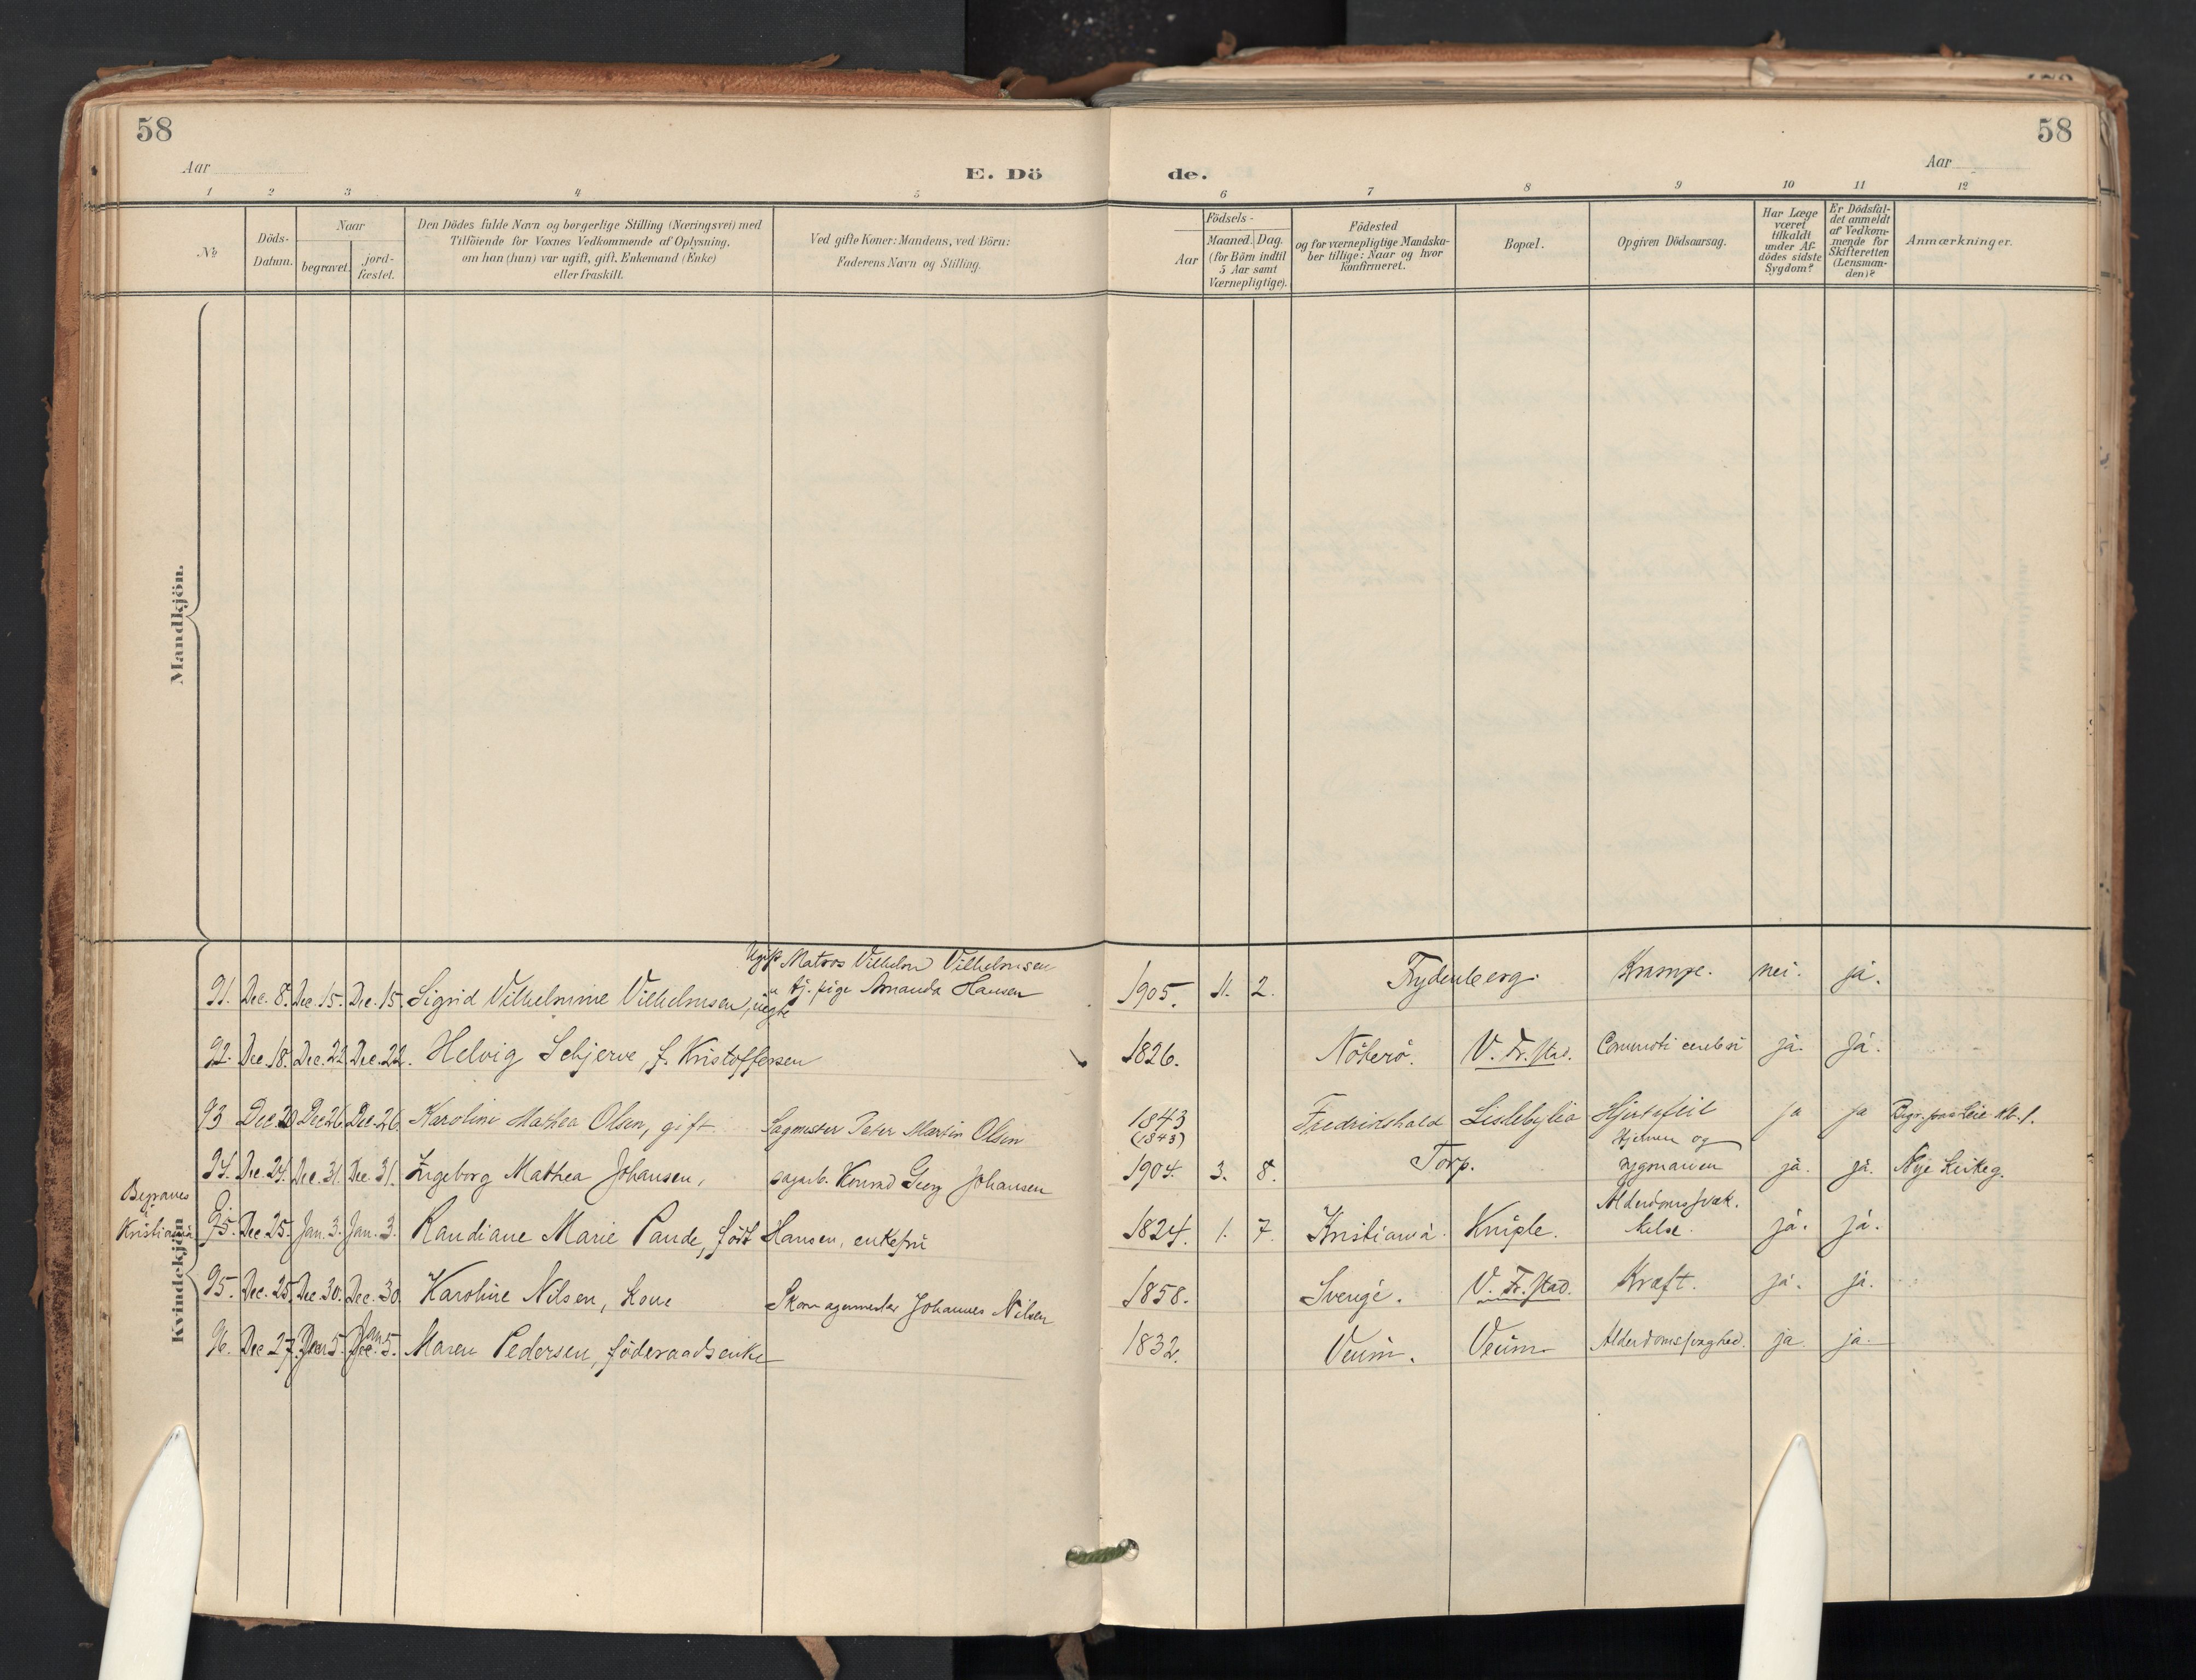 58
58
Aar
E. Dö
de.
Aar
1 2 3 4 5 6 7 8 9 10 11 12
№
Döds-
Datum.
Naar
begravet.
jord-
fæstet.
Den Dödes fulde Navn og borgerlige Stilling (Næringsvei) med
Tilföiende for Voxnes Vedkommende af Oplysning,
om han (hun) var ugift, gift, Enkemand (Enke)
eller fraskilt.
Ved gifte Koner: Mandens, ved Börn:
Faderens Navn og Stilling.
Födsels-
Aar
Maaned. Dag.
(for Börn indtil
5 Aar samt
Værnepligtige).
Födested
og for værnepligtige Mandska-
ber tillige: Naar og hvor
konfirmeret.
Bopæl.
Opgiven Dödsaarsag.
Har Læge
været
tilkaldt
under Af-
dödes sidste
Sygdom?
Er Dödsfal-
det anmeldt
af Vedkom-
mende for
Skifteretten
(Lensman-
den)?
Anmærkninger.
Mandkjön.
Kvindekjön
Ugift Matros Vilhelm Vilhelmsen
91. Dec. 8. Dec. 15. Dec. 15. Sigrid Vilhelmine Vilhelmsen, uegte
u tj. pige Amanda Hansen 1905. 11. 2. Frydenberg. Krampe. nei. ja.
92. Dec. 18. Dec. 22 Dec. 22. Helvig Schjerve, f. Kristoffersen 1826. Nöterö. V. Fr.stad. Commoti cerebri ja. Ja.
93 Dec 20 Dec 26 Dec. 26. Karoline Mathea Olsen, gift Sagmester Peter Martin Olsen 1843
(1843) Fredrikshald Lislebylia Hjertefeil ja ja
94. Dec. 24. Dec. 31. Dec. 31. Ingeborg Mathea Johansen, sagarb. Konrad Georg Johansen 1904. 3. 8. Torp. Hjernen og
rygmarven ja. ja. Nye Kirkeg.
Begraves
i
Kristiania
95. Dec 25. Jan. 3. Jan. 3. Randiane Marie Paude, født Hansen, enkefru 1824. 1. 7. Kristiania. Kniple. Alderdomssvæk-
kelse. ja. ja.
95. Dec. 25. Dec 30. Dec. 30 Karoline Nilsen, Kone Skomagermester Johannes Nilsen 1858. Sverige. V. Fr.stad. Kræft. ja. ja.
96. Dec 27. Jan 5. Jan 5. Maren Pedersen, föderaadsenke 1832. Veum. Veum Alderdomssvaghed. ja. ja.